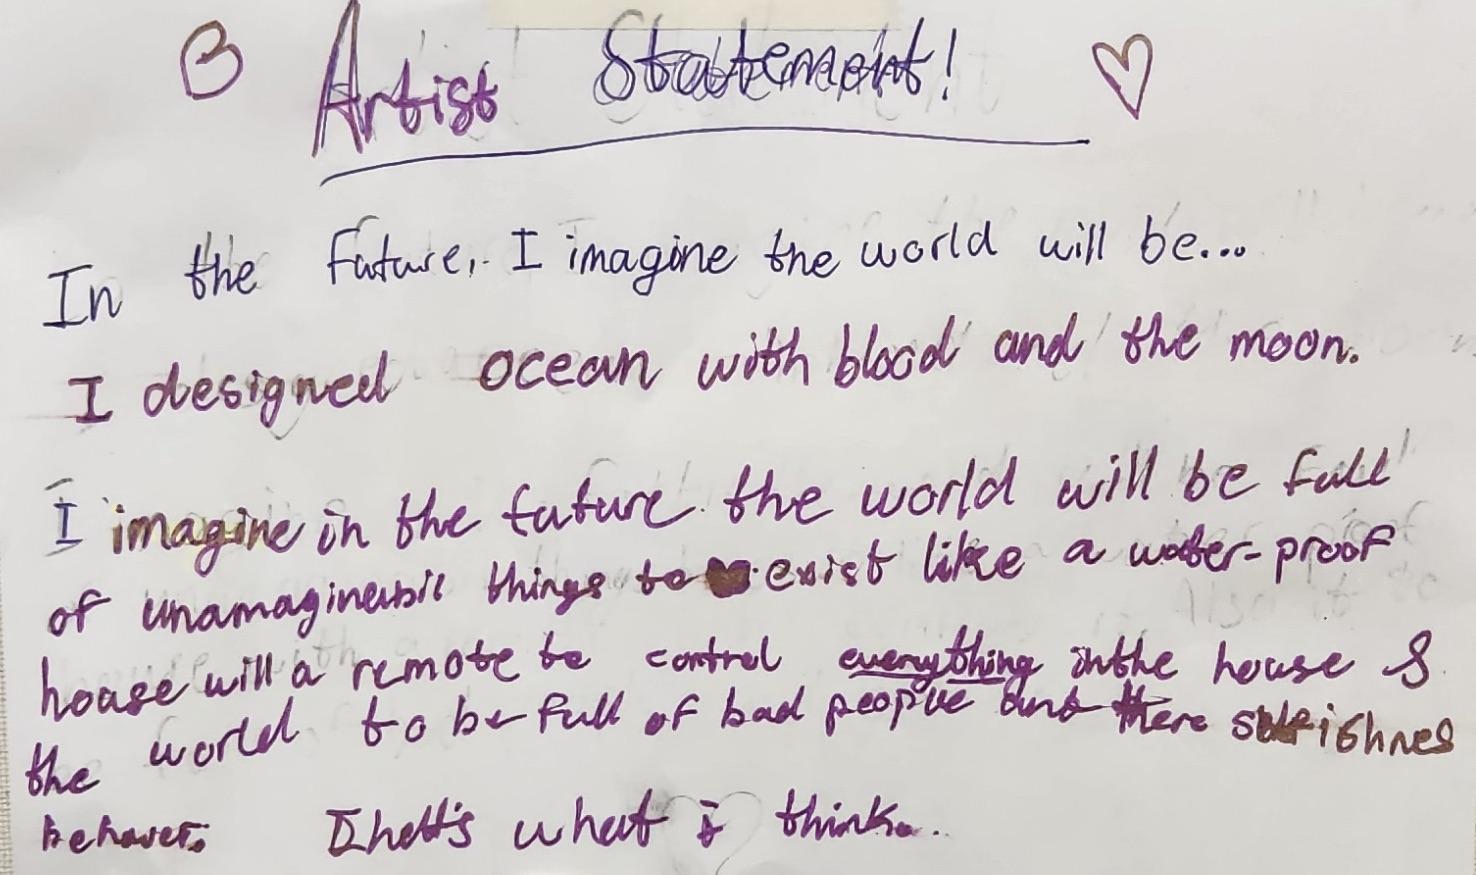 Artist Statement!
In the future, I imagine the world will be...
I designed ocean with blood and the moon.
I imagine in the future the world will be full
of unamaginabil things to exist like a water-proof
house will a remote to control everything in the house &
the world to be full of bad people and there selfishnes
behaver. That's what i think..